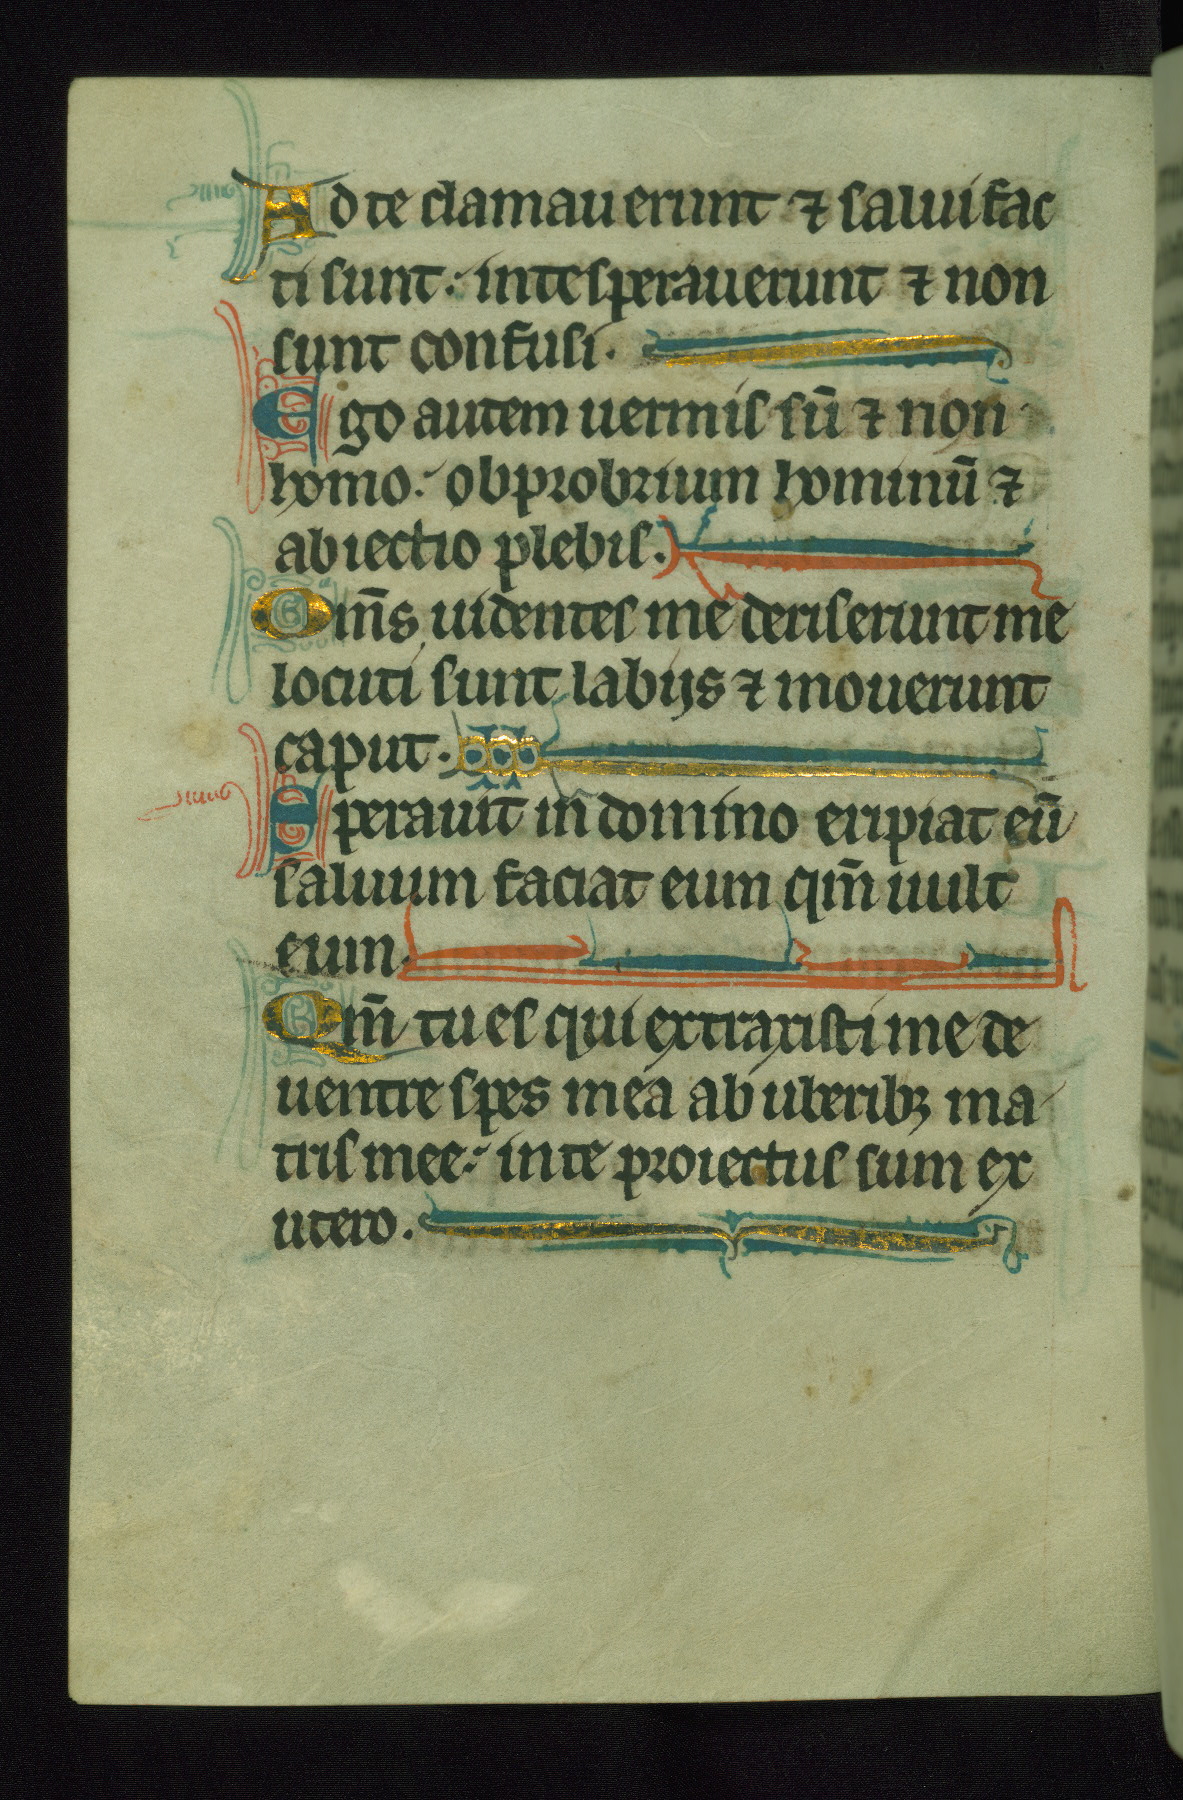 Ad te clamauerunt ⁊ salui fac
ti sunt: in te sperauerunt ⁊ non
sunt confusi.
Ego autem uermis sū ⁊ non
homo: obprobrium hominū ⁊
abiectio plebis.
Om̄s uidentes me deriserunt me
locuti sunt labijs ⁊ mouerunt
caput.
Sperauit in domino eripiat eū
saluum faciat eum qm̄ uult
eum.
Qm̄ tu es qui extraxisti me de
uentre spes mea ab uberibꝫ ma
tris mee: in te proiectus sum ex
utero.